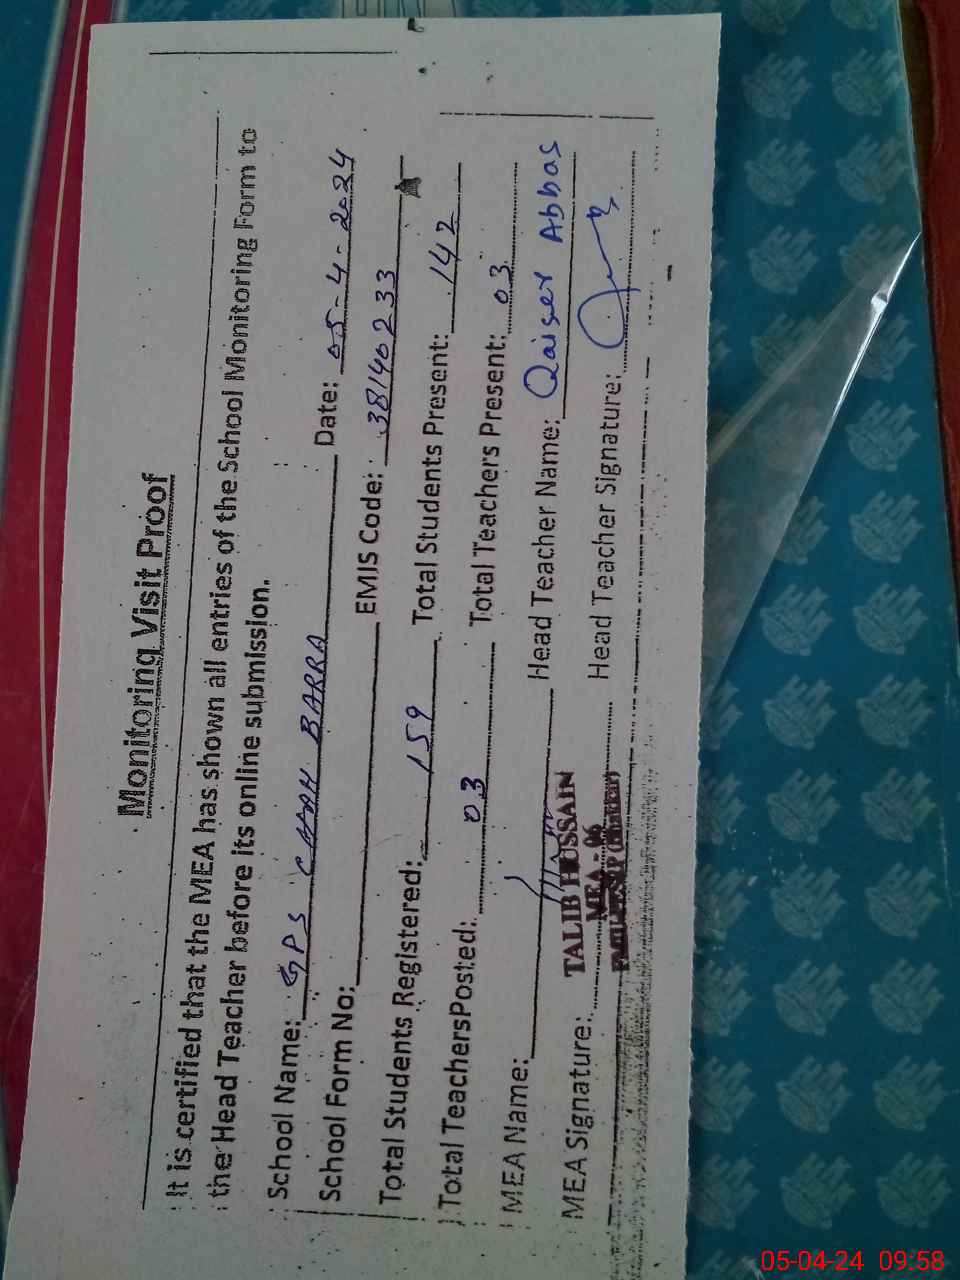 Monitoring Visit Proof
It is certified that the MEA has shown all entries of the School Monitoring Form to
the Head Teacher before its online submission.
School Name: GPS CHAH BARRA Date: 05-4-2024
School Form No: EMIS Code: 38140233
Total Students Registered: 159 Total Students Present: 142
Total TeachersPosted: 03 Total Teachers Present: 03
MEA Name: Head Teacher Name: Qaiser Abbas
TALIB HUSSAIN
MEA - 96
MEA Signature: Head Teacher Signature:
05-04-24 09:58